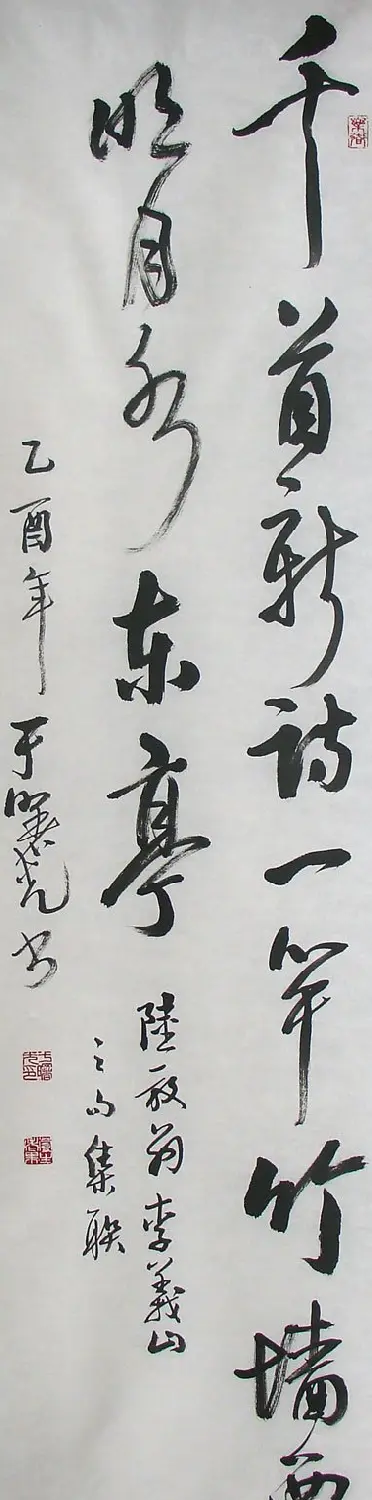 千首新诗一竿竹墙西
明月水东亭
陸放翁李義山
之句集联
乙酉年于曙光书